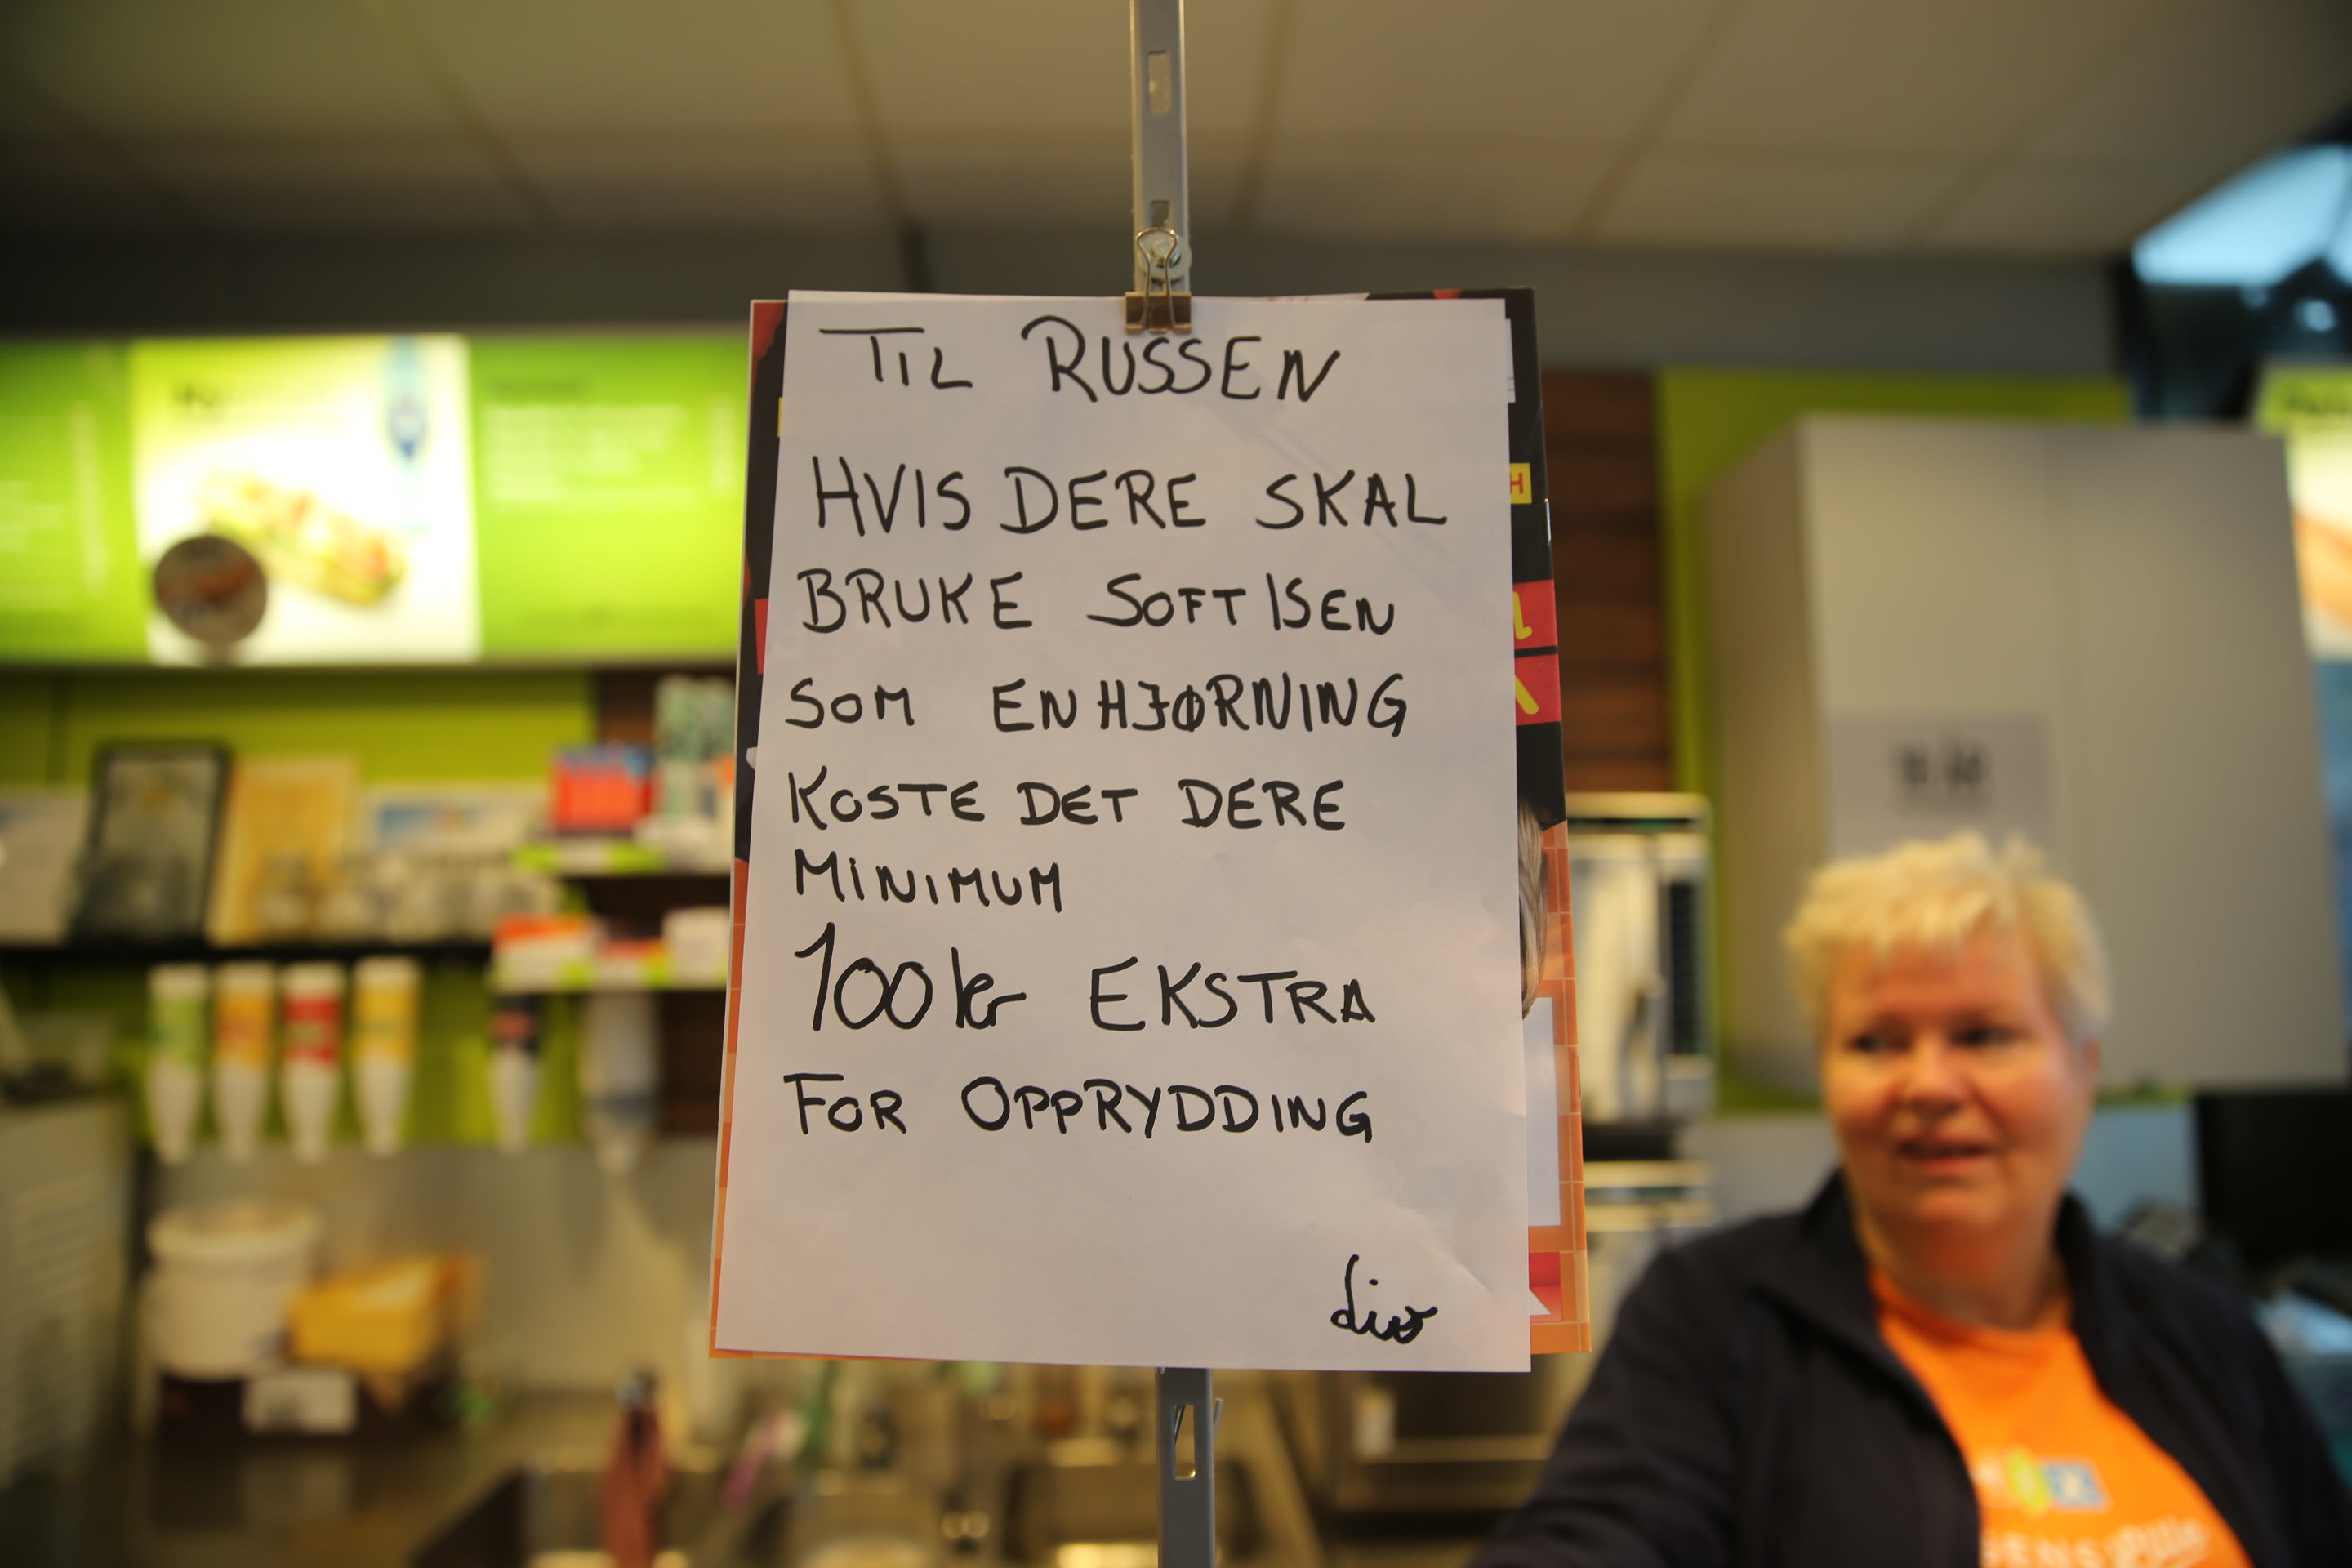 TIL RUSSEN
HVIS DERE SKAL
BRUKE SOFTISEN
SOM ENHJØRNING
KOSTE DET DERE
MINIMUM
100kr EKSTRA
FOR OPPRYDDING
Liv